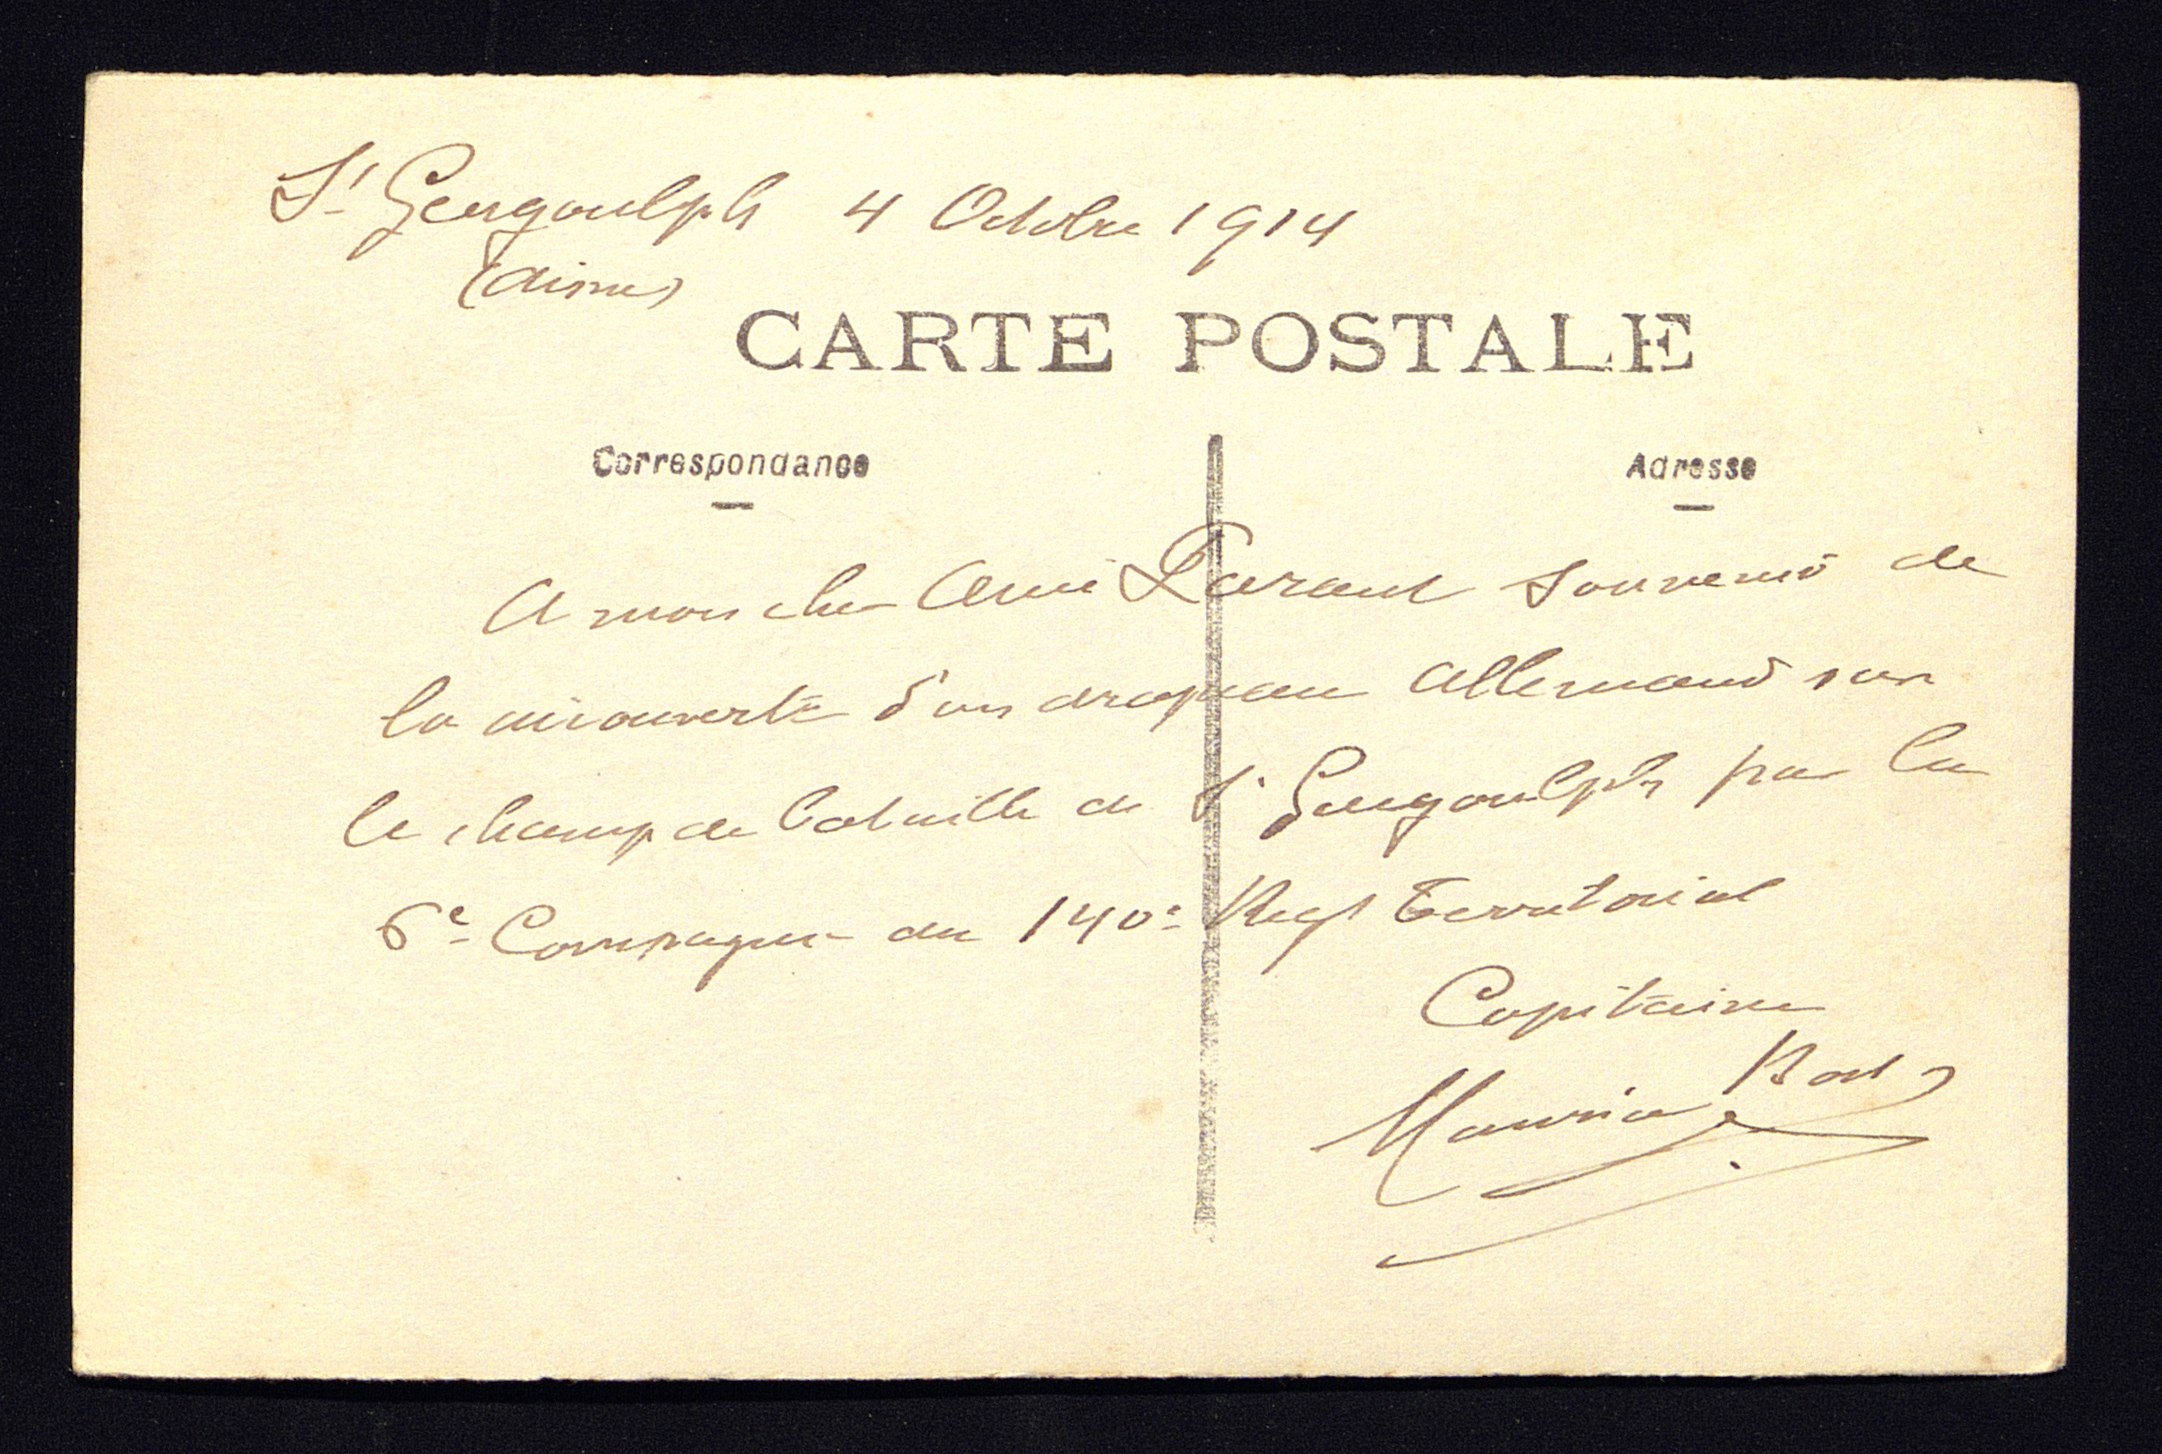 St Gengoulph 4 Octobre 1914
(Aisne)
CARTE POSTALE
Correspondance
Adresse
A mon cher Ami Parant souvenir de
la découverte d'un drapeau Allemand sur
le champ de bataille de St Gengoulph par la
6e Compagnie du 140e Regt Territorial
Capitaine
Maurice